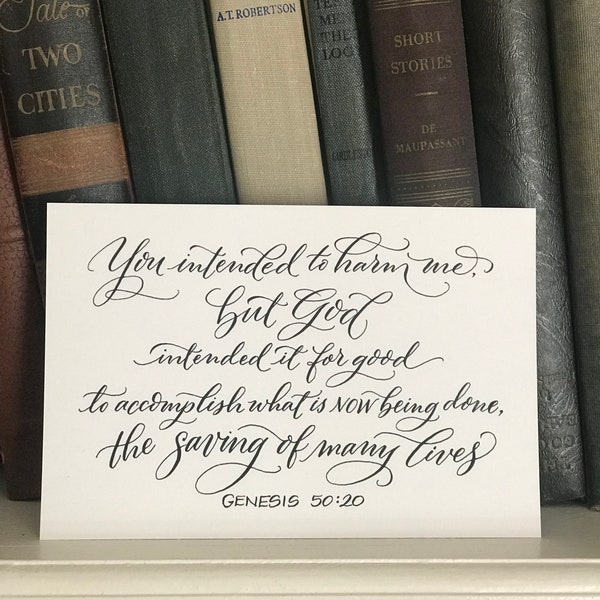 Tale of
TWO
CITIES
A.T. ROBERTSON
ME
THE
LOG
SHORT
STORIES
DE
MAUPASSANT
You intended to harm me,
but God
intended it for good
to accomplish what is NOW being done,
the saving of many lives
GENESIS 50:20